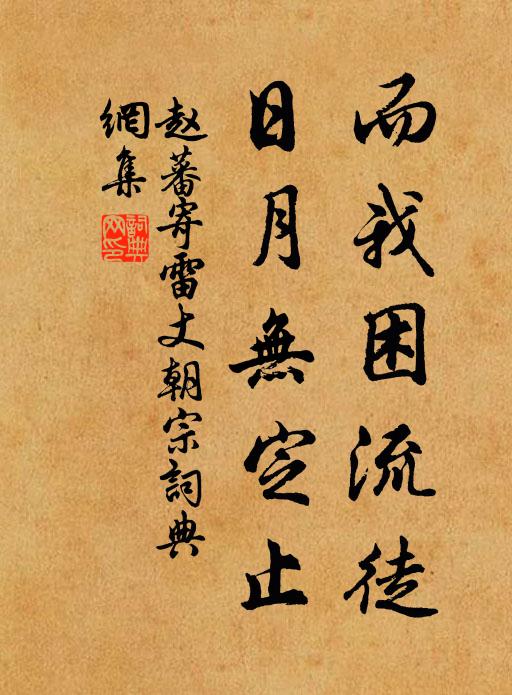 而我困流徒
日月無定止
赵蕃寄雷丈朝宗詞典
網集
詞典
网印